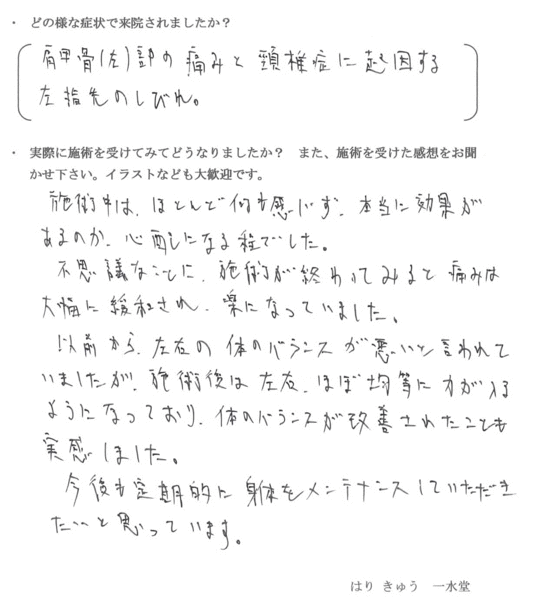 ・ どの様な症状で来院されましたか？
肩甲骨(左)部の痛みと頸椎症に起因する
左指先のしびれ。
・ 実際に施術を受けてみてどうなりましたか？ また、施術を受けた感想をお聞
かせ下さい。イラストなども大歓迎です。
施術中は、ほとんど何も感じず、本当に効果が
あるのか、心配になる程でした。
不思議なことに、施術が終わってみると痛みは
大幅に緩和され、楽になっていました。
以前から、左右の体のバランスが悪いと言われて
いましたが、施術後は左右、ほぼ均等に力が入る
ようになっており、体のバランスが改善されたことも
実感しました。
今後も定期的に身体をメンテナンスしていただき
たいと思っています。
はり きゅう 一水堂